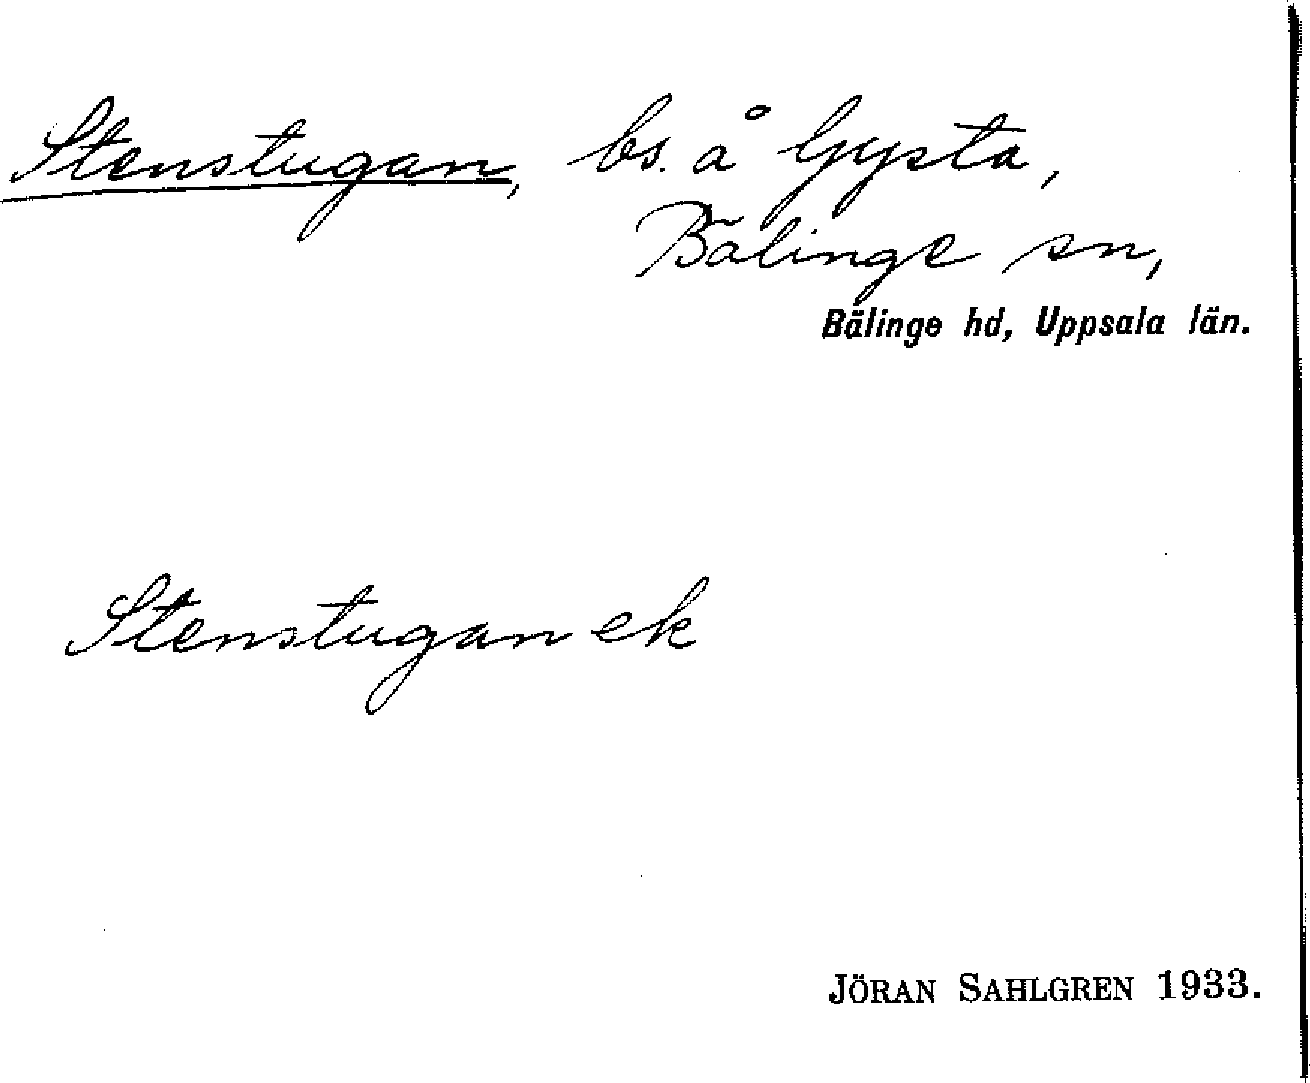 Stenstugan, bs. å Gysta,
Bälinge sn,
Bälinge hd, Uppsala län.
Stenstugan ek
JÖRAN SAHLGREN 1933.